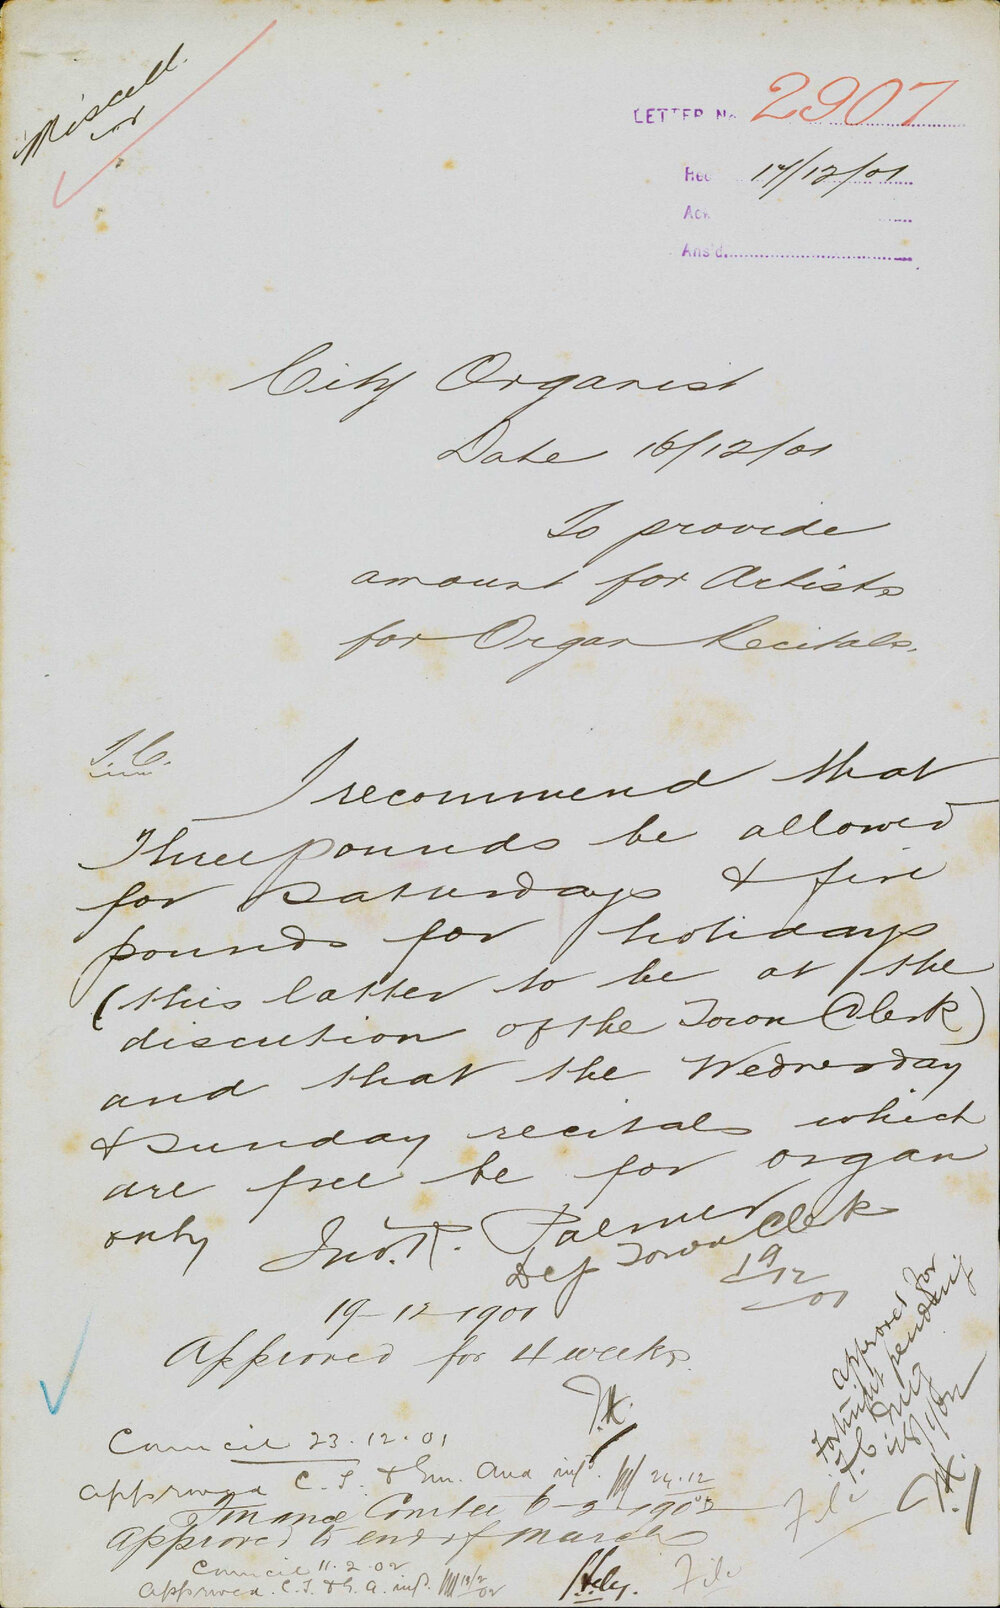 Miscell.
LETTER No 2907
Rec 17/12/01
Ack
Ans'd.
City Organist
Date 16/12/01
To provide
amount for Artists
for Organ Recitals.
T.C.
I recommend that
Three pounds be allowed
for Saturdays & five
pounds for holidays
(this latter to be at the
discretion of the Town Clerk)
and that the Wednesday
& Sunday recitals which
are free be for organ
only Jno. R. Palmer
Dep Town Clerk
19
12
01
19-12-1901
Approved for 4 weeks
Approved for
fortnight pending
Council 23.12.01
approved C.T. & Em. and inf. 24.12
Finance Comtee 6-2-1902
Approved to end of March
Council 11.2.02
Approved. C.T. & E.A. inf. 12/2/02
File
File